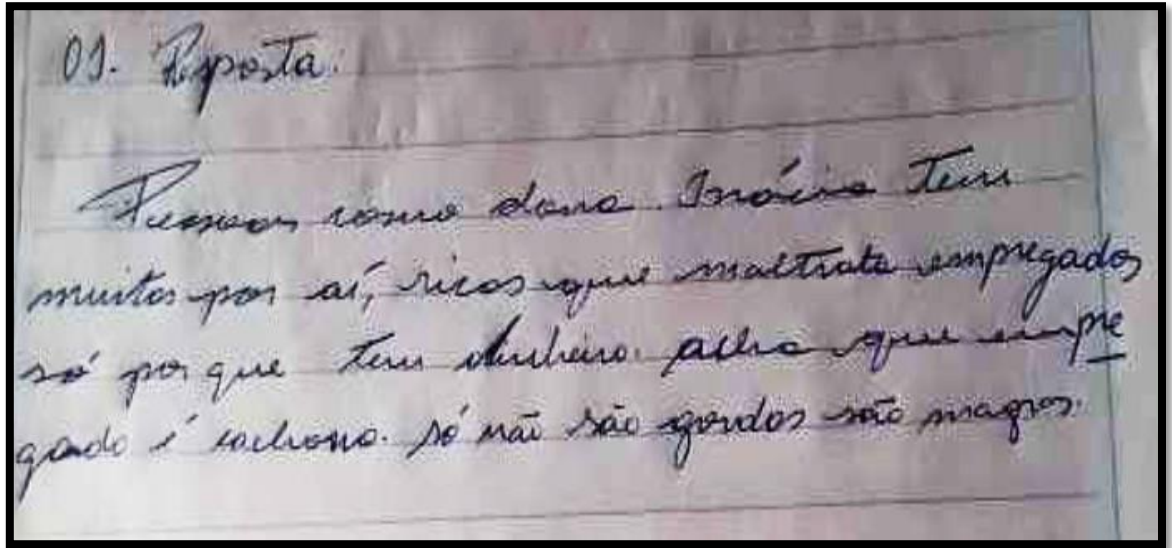 01. Resposta:
Pessoas como dona Inácia tem
muitos por aí, ricos que maltrata empregados
só por que tem dinheiro. acha que empre
gado é cachorro. só não são gordos são magros.